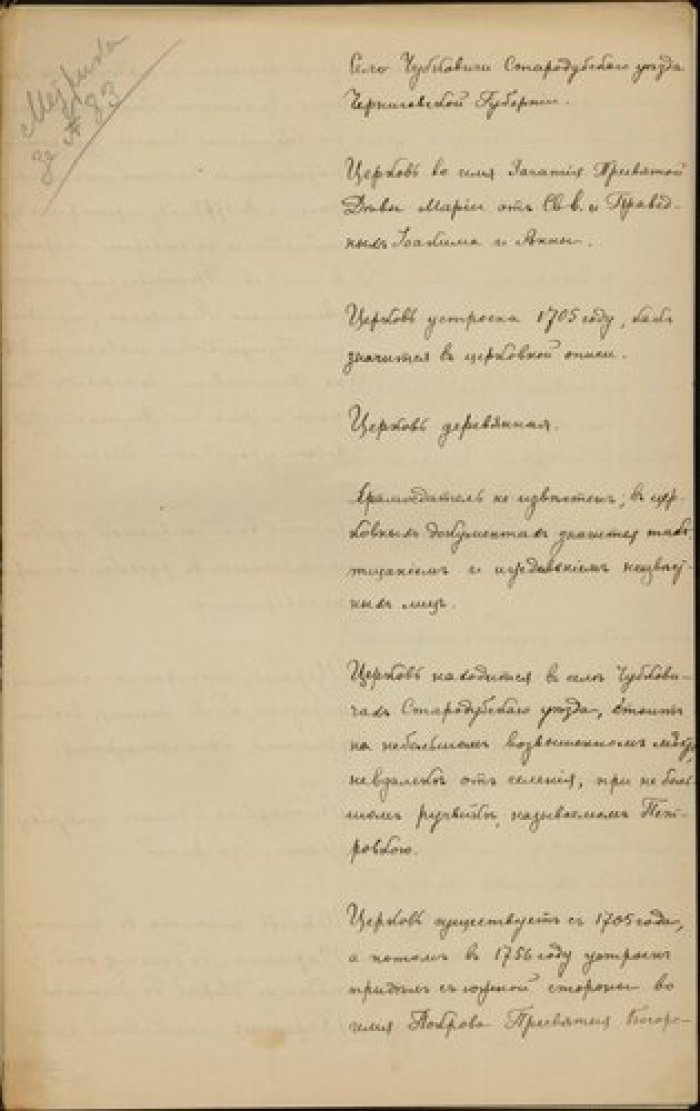 Метрика
за № 83
Село Чубковичи Стародубскаго уѣзда
Черниговской Губернiи.
Церковь во имя Зачатiя Пресвятой
Дѣвы Марiи отъ Св. и Правед-
ныхъ Iоакима и Анны.
Церковь устроена 1705 году, какъ
значится въ церковной описи.
Церковь деревянная.
Храмоздатель не извѣстенъ; въ цер-
ковныхъ документахъ значится такъ,
тщанiемъ и иждивенiемъ неизвѣст-
ныхъ лицъ.
Церковь находится въ селѣ Чубкови-
чахъ Стародубскаго уѣзда, стоитъ
на небольшомъ возвышенномъ мѣстѣ,
невдалекѣ отъ селенiя, при не боль-
шомъ ручейкѣ, называемомъ Пет-
ровкою.
Церковь существуетъ съ 1705 года,
а потомъ въ 1756 году устроенъ
придѣлъ съ южной стороны во
имя Покрова Пресвятыя Богоро-